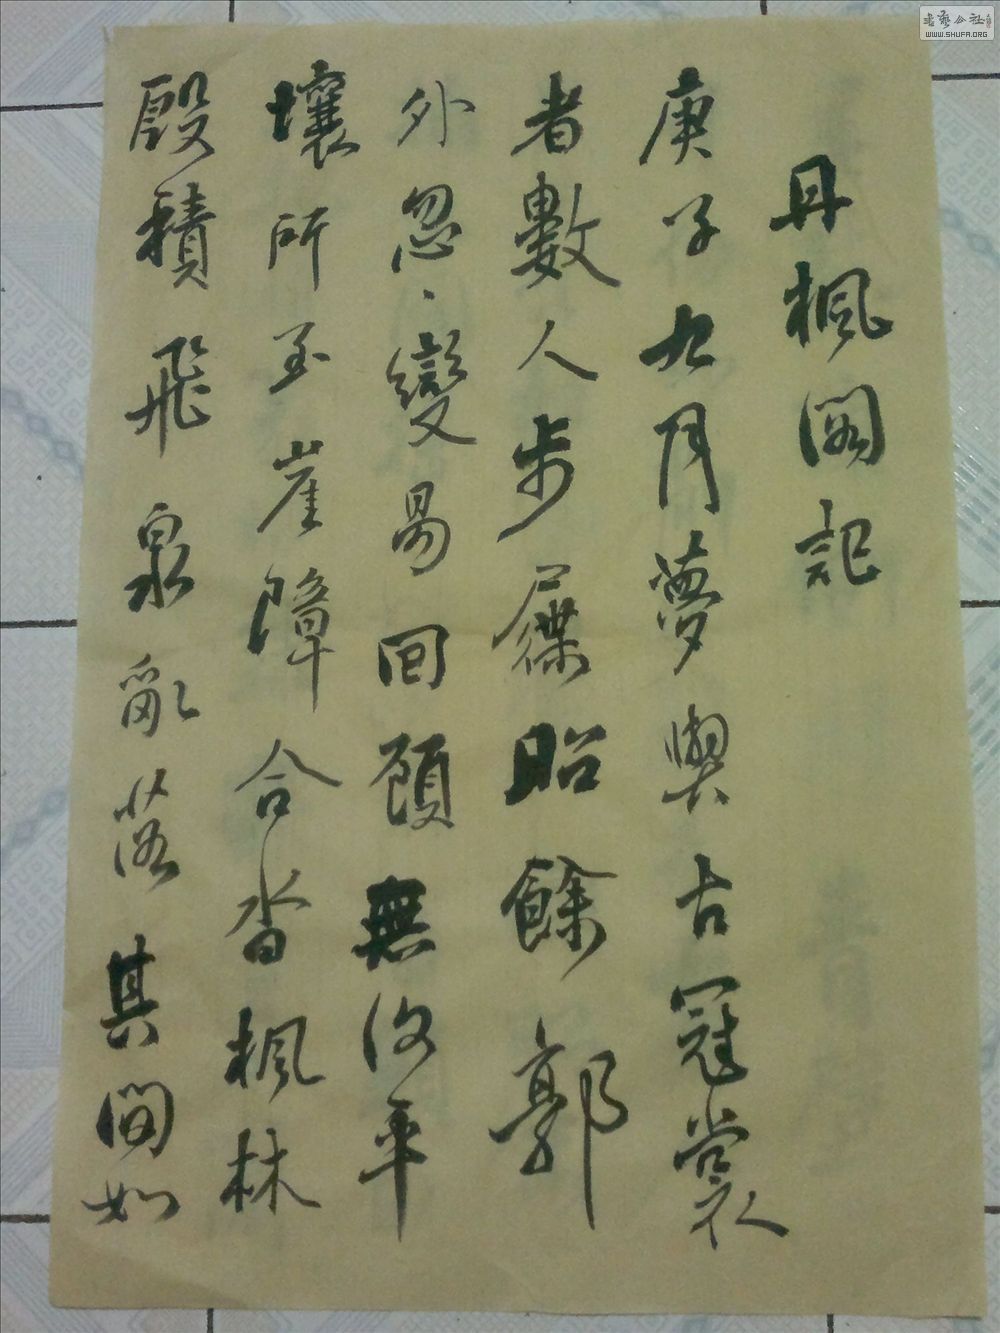 丹楓閣記
庚子九月夢與古冠裳
者數人步屧昭餘郭
外忽忽變易回顧無復平
壤所至崖障合沓楓林
殷積飛泉亂落其間如
书艺公社
WWW.SHUFA.ORG